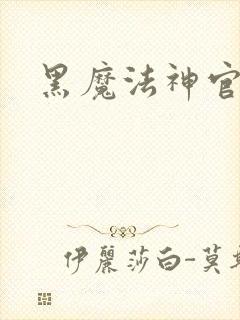 黑魔法神官
伊麗莎白-莫